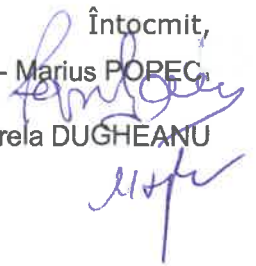 Întocmit,
- Marius POPEC
rela DUGHEANU